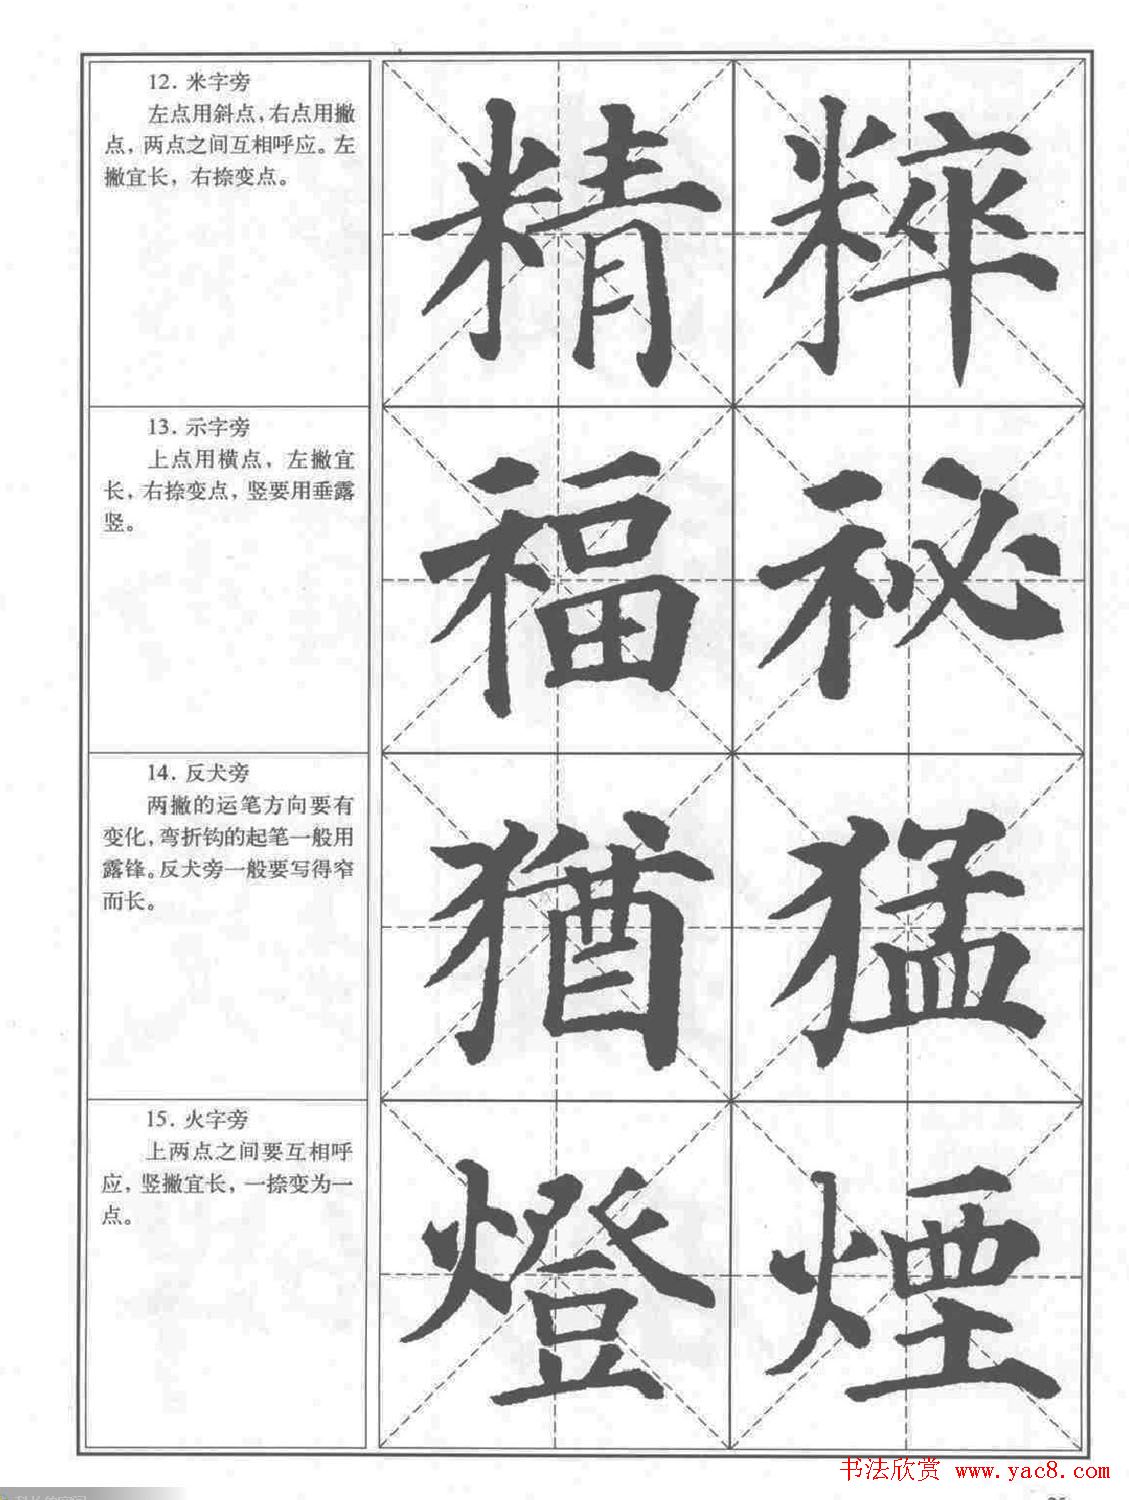 12. 米字旁
左点用斜点，右点用撇
点，两点之间互相呼应。左
撇宜长，右捺变点。
精 粹
13. 示字旁
上点用横点，左撇宜
长，右捺变点，竖要用垂露
竖。
福 祕
14. 反犬旁
两撇的运笔方向要有
变化，弯折钩的起笔一般用
露锋。反犬旁一般要写得窄
而长。
猶 猛
15. 火字旁
上两点之间要互相呼
应，竖撇宜长，一捺变为一
点。
燈 煙
书法欣赏 www.yac8.com